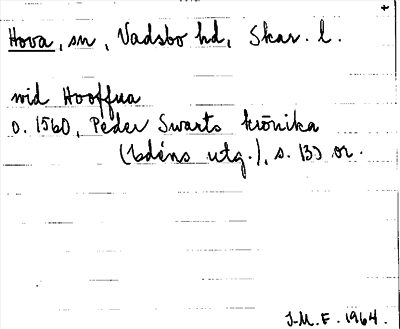 +
Hova, sn, Vadsbo hd, Skar. l.
wid Hooffua
o. 1560, Peder Swarts krönika
(Edéns utg.), s. 133 or.
J.M.F. 1964.